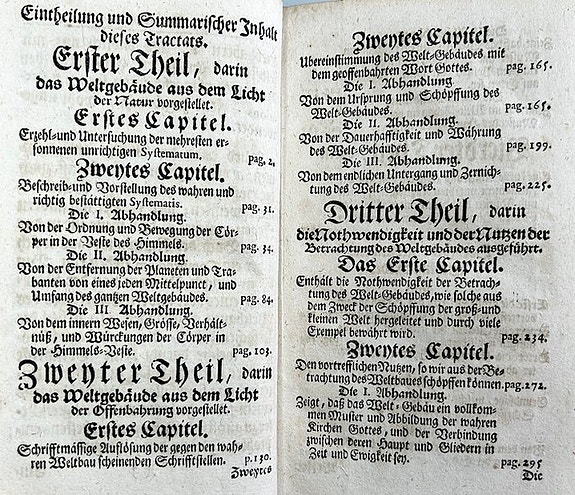 Eintheilung und Summarischer Inhalt
dieses Tractats.
Erster Theil, darin
das Weltgebäude aus dem Licht
der Natur vorgestellet.
Erstes Capitel.
Erzehl- und Untersuchung der mehresten er-
sonnenen unrichtigen Systematum. pag. 2.
Zweytes Capitel.
Beschreib- und Vorstellung des wahren und
richtig bestättigten Systematis. pag. 31.
Die I. Abhandlung.
Von der Ordnung und Bewegung der Cör-
per in der Veste des Himmels. pag. 34.
Die II. Abhandlung.
Von der Entfernung der Planeten und Tra-
banten von eines jeden Mittelpunct, und
Umfang des gantzen Weltgebäudes. pag. 84.
Die III Abhandlung.
Von dem innern Wesen, Grösse, Verhält-
nüß, und Würckungen der Cörper in
der Himmels-Veste. pag. 103.
Zweyter Theil, darin
das Weltgebäude aus dem Licht
der Offenbahrung vorgestellet.
Erstes Capitel.
Schrifftmässige Auflösung der gegen den wah-
ren Weltbau scheinenden Schrifftstellen. p. 130.
Zweytes
Zweytes Capitel.
Ubereinstimmung des Welt-Gebäudes mit
dem geoffenbahrten Wort Gottes. pag. 165.
Die I. Abhandlung.
Von dem Ursprung und Schöpffung des
Welt-Gebäudes. pag. 165.
Die II. Abhandlung.
Von der Dauerhafftigkeit und Währung
des Welt-Gebäudes. pag. 199.
Die III. Abhandlung.
Von dem endlichen Untergang und Zernich-
tung des Welt-Gebäudes. pag. 225.
Dritter Theil, darin
die Nothwendigkeit und der Nutzen der
Betrachtung des Weltgebäudes ausgeführt.
Das Erste Capitel.
Enthält die Nothwendigkeit der Betrach-
tung des Welt-Gebäudes, wie solche aus
dem Zweck der Schöpffung der groß- und
kleinen Welt hergeleitet und durch viele
Exempel bewährt wird. pag. 234.
Zweytes Capitel.
Den vortrefflichen Nutzen, so wir aus der Be-
trachtung des Weltbaues schöpffen können. pag. 272.
Die I. Abhandlung.
Zeigt, daß das Welt-Gebäu ein vollkom-
men Muster und Abbildung der wahren
Kirchen Gottes, und der Verbindung
zwischen deren Haupt und Gliedern in
Zeit und Ewigkeit sey. pag. 295
Die